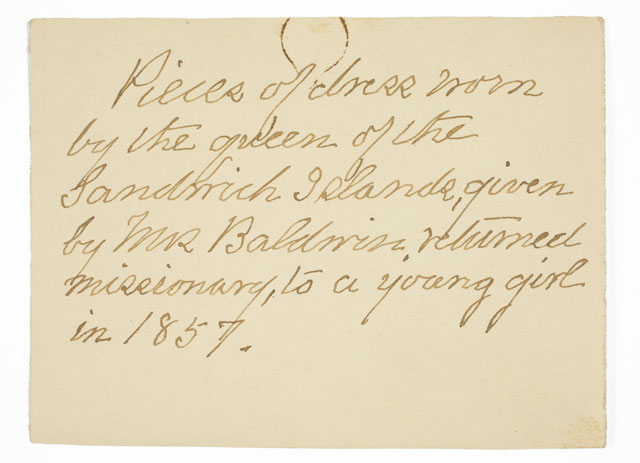 Pieces of dress worn
by the queen of the
Sandwich Islands, given
by Mrs Baldwin returned
missionary, to a young girl
in 1857.